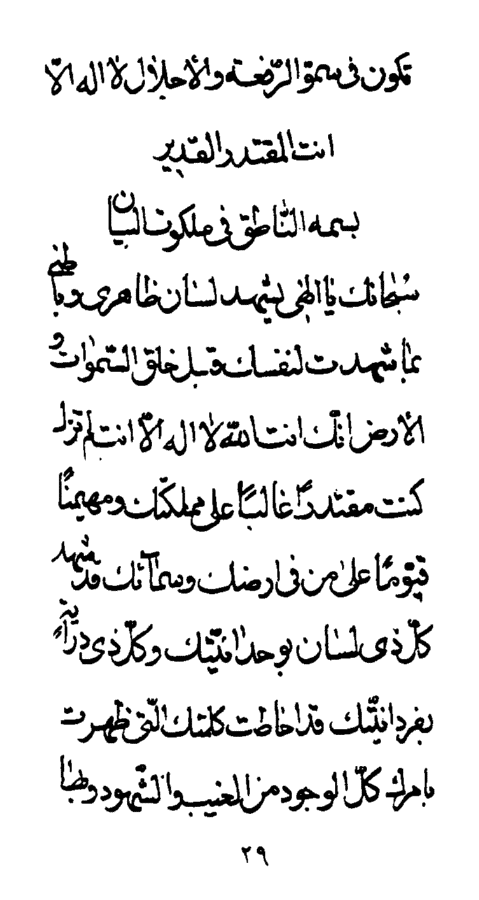 تكون فى سموّ الرّفعة و الأجلال لا اله الّا
انت المقتدر القدير
بسمه النّاطق فى ملكوت البيان
سُبحانك يا الهى يشهد لسان ظاهرى و باطنى
بما شهدت لنفسك قبل خلق السّموات و
الأرض انّك انت اللّه لا اله الّا انت لم تزل
كنت مقتدرًا غالبًا على مملكتك و مهيمنًا
قيّومًا على من فى ارضك و سمآئك قد شهد
كلّ ذى لسان بوحدانيّتك و كلّ ذى دراية
بفردانيّتك قد احاطت كلمتك الّتى ظهرت
بامرك كلّ الوجود من الغيب و الشّهود و بها
٢٩